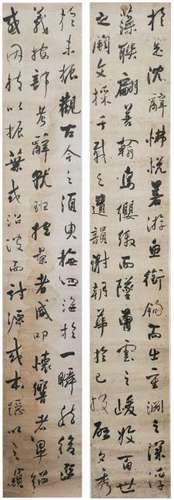 於是沈辭怫悅若游魚銜鉤而出重淵之深浮
藻聯翩若翰鳥纓繳而墜曾雲之峻收百世
之闕文採千載之遺韻謝朝華於已披啟夕秀
於未振觀古今之須臾撫四海於一瞬然後選
義按部考辭就班抱景者咸叩懷響者畢彈
或因枝以振葉或沿波而討源或本隱以之顯